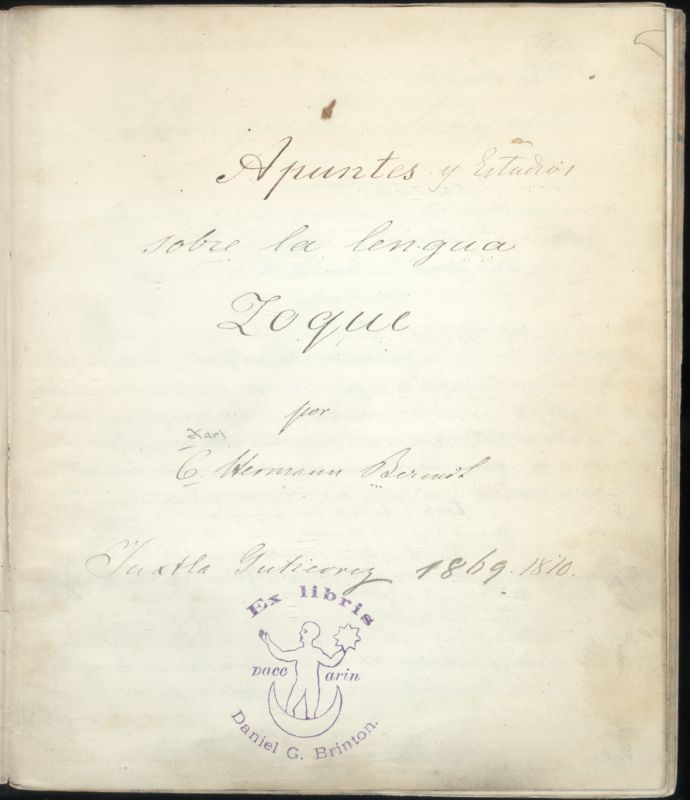 Apuntes y Estudios
sobre la lengua
Zoque
por
Karl
C. Hermann Berendt
Tuxtla Gutierrez 1869. 1870.
Ex libris
pacc arin
Daniel G. Brinton.